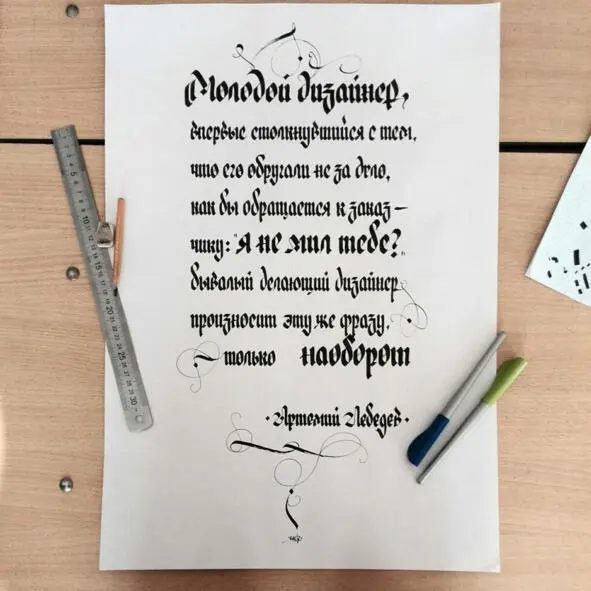 Молодой дизайнер,
впервые столкнувшийся с тем,
что его обругали не за дело,
как бы обращается к заказ—
чику: "я не мил тебе?",
бывалый делающий дизайнер
произносит эту же фразу,
~ только наоборот
· Артемий Лебедев ·
5 10 15 20 25 30